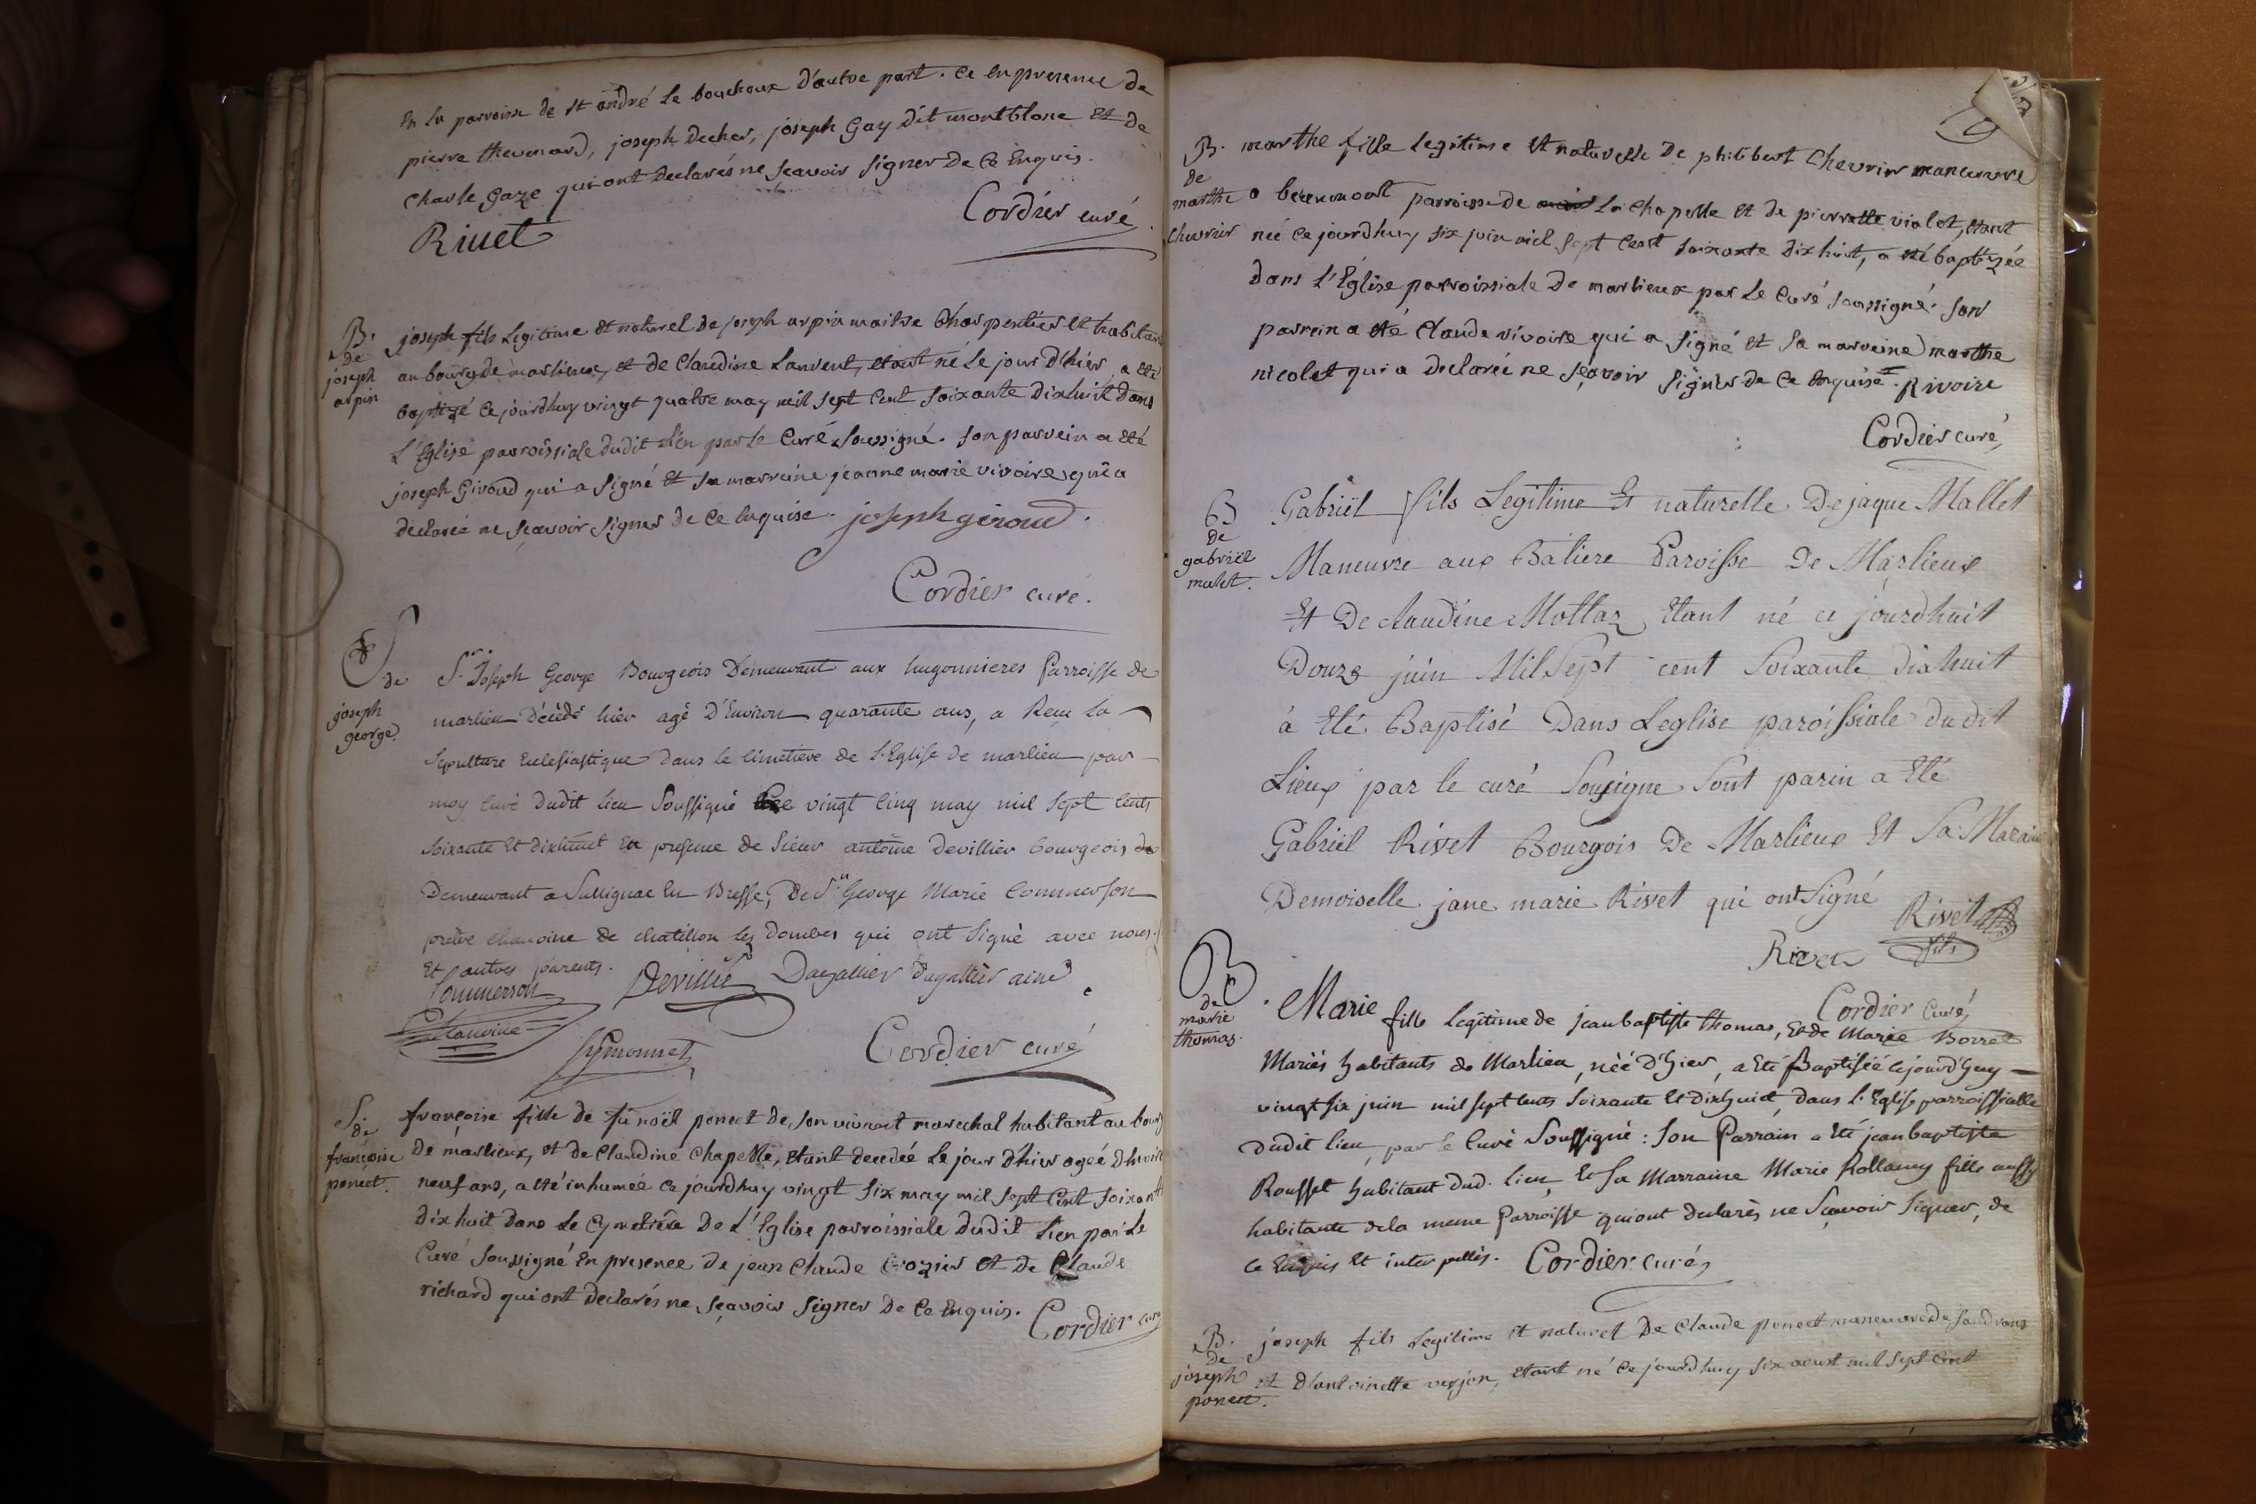 en la parroisse de st andré le bouchoux d'autre part. Ce en presence de
pierre thevenard, joseph Decher, joseph Gay dit montblanc et de
charle Gaze qui ont declarés ne sçavoir signer de ce enquis.
Rivet
Cordier curé.
B.
de
joseph
arpin
joseph fils legitime et naturel de joseph arpin maitre Charpentier et habitant
au bourg de marlieux, et de Claudine Laurent, etant né le jour d'hier, a eté
baptizé ce jourdhuy vingt quatre may mil sept cent soixante dixhuit dans
L'Eglise parroissiale dudit lieu par le Curé soussigné. son parrein a eté
joseph Giroud qui a signé et sa marreine jeanne marie rivoire qui a
declarée ne sçavoir signer de ce enquise. joseph giroud.
Cordier curé.
S
de
joseph
george.
Sr. Joseph George Bourgeois Demeurant aux hugonnieres Parroisse de
marlieu Décédé hier agé D'Environ quarante ans, a Reçu la
Sepulture Eclesiastique dans le cimetiere de L'Eglise de marlieu par
moy curé dudit lieu Soussigné Ce vingt cinq may mil sept cents
Soixante et dixhuit En presence de Sieur antoine Devillier bourgeois
Demeurant a Sullignac En Bresse, De Sr. George Marie Commerson
prêtre chanoine de chatillon les Dombes qui ont signé avec nous
Et autres parents.
Commerson
Chanoine
Devillié
Dagallier
Dagallier ainé
Symonnet
Cordier curé
S.
de
françoise
ponect.
françoise fille de fû noël ponect de son vivant marechal habitant au bourg
de marlieux, et de Claudine Chapelle, etant decedée le jour d'hier agée d'huit
neuf ans, a eté inhumée ce jourdhuy vingt six may mil sept Cent soixante
dix huit dans le Cymetiére de L'Eglise parroissiale dudit Lieu par le
Curé soussigné en presence de jean Claude Crozier et de Claude
richard qui ont declarés ne sçavoir signer de ce enquis. Cordier curé
B.
de
marthe
Chevrier
marthe fille legitime et naturelle de philibert Chevrier manœuvre
a beauemont parroisse de La Chapelle et de pierrette violet, etant
née ce jourdhuy six juin mil sept Cent soixante dix huit, a eté baptizée
dans L'Eglise parroissiale de marlieux par le Curé soussigné. Son
parrein a eté Claude rivoire qui a signé et sa marreine marthe
nicolet qui a declarée ne sçavoir signer de ce enquise. Rivoire
Cordier curé
B
de
gabriël
malet.
Gabriël fils Legitime Et naturelle De jaque Mallet
Maneuvre aux Batiere Paroisse De Marlieux
Et De claudine Mottaz Etant né ce jourdhuit
Douze juin Mil Sept cent Soixante dixhuit
à Eté Baptisé Dans Leglise paroissiale dudit
Lieux par le curé Sousigne Sont parin a Eté
Gabriel Rivet Bourgois De Marlieux Et Sa Maraine
Demoiselle jane marie Rivet qui ont Signé
Rivet
fils
Rivet
Cordier Curé
B
de
marie
thomas.
Marie fille Legitime de jean baptiste thomas, Et de Marie Borrel
Mariés habitants de Marlieu, néé D'hier, a Eté Baptiséé cejourd'huy
vingt six juin mil sept cents Soixante Et dixhuit, dans L'Eglise parroissialle
dudit lieu, par le Curé Soussigné : Son Parrain a Eté jean baptiste
Rousset habitant dud. lieu, Et Sa Marraine Marie Rollamy fille aussy
habitante de la meme Parroisse qui ont declarés ne Sçavoir Signer, de
ce Enquis Et interpellés. Cordier curé
B.
de
joseph
ponect.
joseph fils legitime et naturel De Claude ponect maneuvre de Sandrans
et d'antoinette verjon, etant né ce jourdhuy six aoust mil sept cent